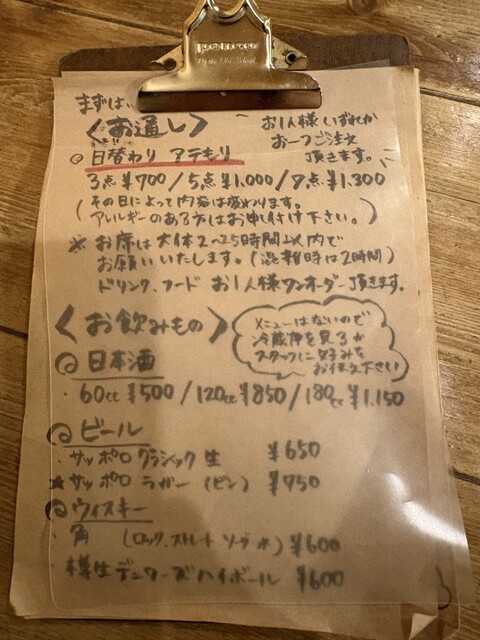 まずは、
〈お通し〉
お1人様いずれか
お一つご注文
頂きます。
日替わり アテモリ
3点¥700/5点¥1.000/7点¥1.300
(その日によって内容は変わります。
アレルギーのある方はお申し付け下さい。)
※お席は大体2〜2.5時間以内で
お願いいたします。(混雑時は2時間)
ドリンク、フード お1人様ワンオーダー頂きます。
〈お飲みもの〉
メニューはないので
冷蔵庫を見るか
スタッフに好みを
お伝え下さい
◎日本酒
・60cc¥500/120cc¥850/180cc¥1.150
◎ビール
・サッポロ クラシック 生 ¥650
★サッポロ ラガー (ビン) ¥750
◎ウィスキー
・角 (ロック、ストレート ソーダ 水) ¥600
・樽生デュワーズハイボール ¥600